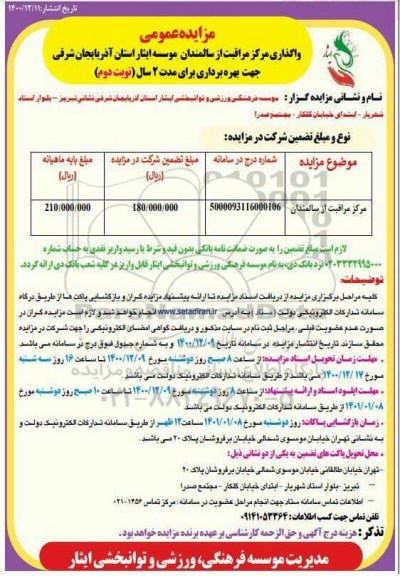 تاریخ انتشار: ۱۴۰۰/۱۲/۱۱
مزایده عمومی
واگذاری مرکز مراقبت از سالمندان موسسه ایثار استان آذربایجان شرقی
جهت بهره برداری برای مدت ۲ سال (نوبت دوم)
ایثار
نام و نشانی مزایده گزار: موسسه فرهنگی ورزشی و توانبخشی ایثار استان آذربایجان شرقی نشانی تبریز – بلوار استاد
شهریار - ابتدای خیابان گلکار - مجتمع صدرا
نوع و مبلغ تضمین شرکت در مزایده:
موضوع مزایده شماره درج در سامانه مبلغ تضمین شرکت در مزایده (ریال) مبلغ پایه ماهیانه (ریال)
مرکز مراقبت از سالمندان 5000093116000106 180/000/000 210/000/000
لازم است مبلغ تضمین را به صورت ضمانت نامه بانکی بدون قید و شرط یا رسید واریز نقدی به حساب شماره
۰۲۰۳۳۳۲۹۹۵۰۰۰ نزد بانک دی، به نام موسسه فرهنگی ورزشی و توانبخشی ایثار قابل واریز در کلیه شعب بانک دی ارائه گردد.
توضیحات:
کلیه مراحل برگزاری مزایده از دریافت اسناد مزایده تا ارائه پیشنهاد مزایده گران و بازگشایی پاکت ها از طریق درگاه
سامانه تدارکات الکترونیکی دولت (ستاد) به آدرس www.setadiran.ir انجام خواهد شد و لازم است مزایده گران در
صورت عدم عضویت قبلی، مراحل ثبت نام در سایت مذکور و دریافت گواهی امضای الکترونیکی را جهت شرکت در مزایده
محقق سازند. تاریخ انتشار مزایده در سامانه تاریخ ۱۴۰۰/۱۲/۰۹ و به شماره جدول فوق درج در سامانه می باشد.
مهلت زمان تحویل اسناد مزایده: از ساعت ۸ صبح روز دوشنبه مورخ ۱۴۰۰/۱۲/۰۹ تا ساعت ۱۶ روز سه شنبه
مورخ ۱۴۰۰/۱۲/۱۷ می باشد از طریق سامانه تدارکات الکترونیک دولت می باشد
مهلت آپلود اسناد و ارائه پیشنهاد: از ساعت ۸ روز دوشنبه مورخ ۱۴۰۰/۱۲/۰۹ تا ساعت ۱۰ صبح روز دوشنبه مورخ
۱۴۰۱/۰۱/۰۸ از طریق سامانه تدارکات الکترونیک دولت می باشد.
زمان بازگشایی پاکات: روز دوشنبه مورخ ۱۴۰۱/۰۱/۰۸ از ساعت ۱۲ ظهر از طریق سامانه تدارکات الکترونیک دولت و
به نشانی تهران خیابان موسوی شمالی خیابان برفروشان پلاک ۲۰ می باشد.
محل تحویل پاکت های تضمین به یکی از دو نشانی ذیل:
-تهران خیابان طالقانی خیابان موسوی شمالی خیابان برفروشان پلاک ۲۰
تبریز -بلوار استاد شهریار - ابتدای خیابان گلکار - مجتمع صدرا
اطلاعات تماس سامانه ستاد جهت انجام مراحل عضویت در سامانه: مرکز تماس ۱۴۵۶-۰۲۱
تلفن تماس جهت کسب اطلاعات: ۰۹۱۴۱۰۵۳۳۶۴
تذکر: هزینه درج آگهی و حق الزحمه کارشناسی بر عهده برنده مزایده خواهد بود.
مدیریت موسسه فرهنگی، ورزشی و توانبخشی ایثار